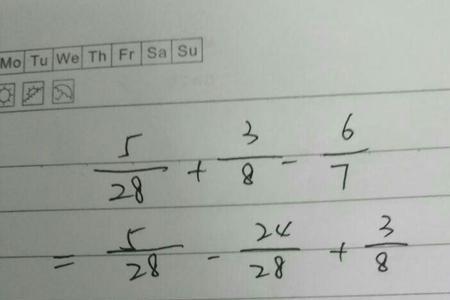 Mo Tu We Th Fr Sa Su
5/28 + 3/8 - 6/7
= 5/28 - 24/28 + 3/8